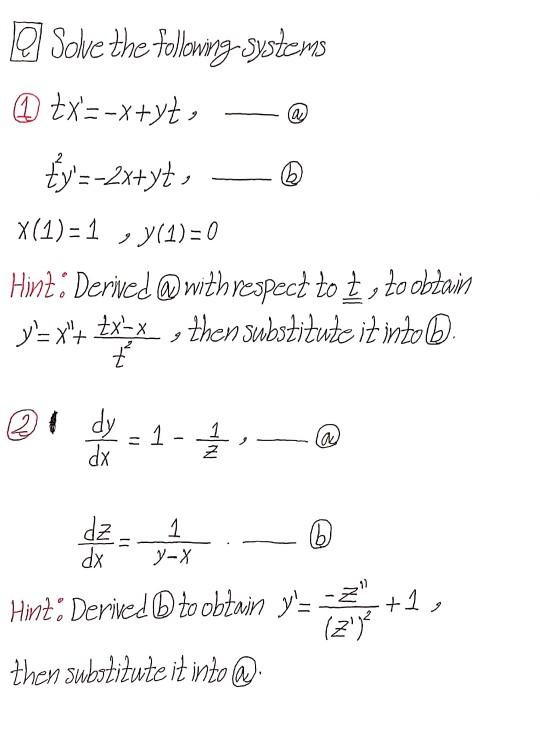 Q Solve the following systems
① tx' = -x+yt , —— ⓐ
t²y' = -2x+yt , —— ⓑ
x(1)=1 , y(1)=0
Hint: Derived ⓐ with respect to t , to obtain
y' = x'' + (tx'-x)/t² , then substitute it into ⓑ.
② dy/dx = 1 - 1/z , —— ⓐ
dz/dx = 1/(y-x) . —— ⓑ
Hint: Derived ⓑ to obtain y' = -z''/(z')² + 1 ,
then substitute it into ⓐ.